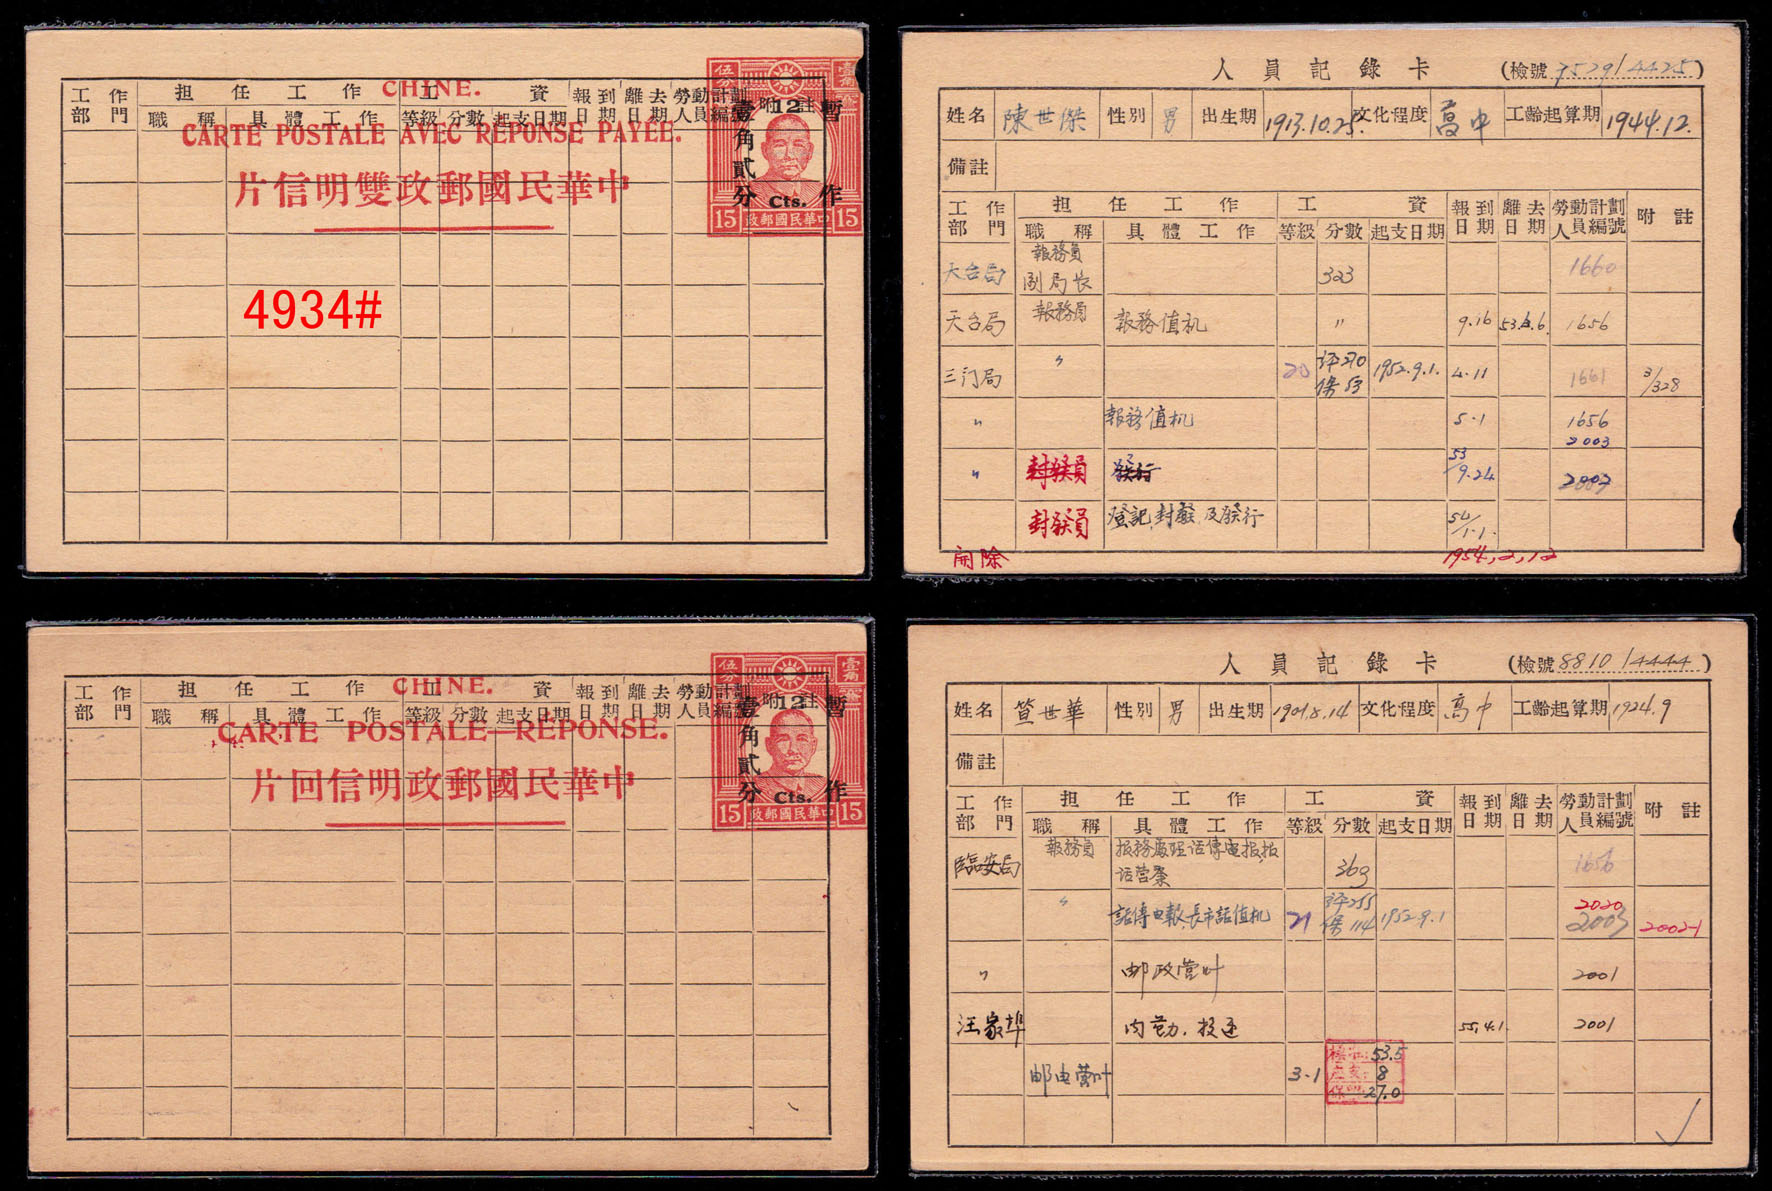 CHINE.
工作部門
擔任工作
職稱
具體工作
工資
等級
分數
起支日期
報到日期
離去日期
勞動計劃人員編號
附註
CARTE POSTALE AVEC REPONSE PAYÉE.
片信明雙政郵國民華中
伍分
壹角
暫作
壹角貳分
12
Cts.
15
政郵國民華中
15
4934#
人員記錄卡
(檢號 7529/4425)
姓名 陳世傑 性別 男 出生期 1913.10.25. 文化程度 高中 工齡起算期 1944.12.
備註
工作部門 擔任工作 工資 報到日期 離去日期 勞動計劃人員編號 附註
職稱 具體工作 等級 分數 起支日期
天台局 報務員 副局长 323 1660
天台局 報務員 報務值机 〃 9.16 1656
三门局 〃 20 评270 保53 1952.9.1. 4.11 1661 3/328
〃 報務值机 5.1 1656 2003
〃 封發員 發行 53/9.24 2003
封發員 登記,封發,及發行 54/1.1.
開除 1954.2.12
CHINE.
工作部門
擔任工作
職稱
具體工作
工資
等級
分數
起支日期
報到日期
離去日期
勞動計劃人員編號
附註
CARTE POSTALE—REPONSE.
片回信明政郵國民華中
伍分
壹角
暫作
壹角貳分
12
Cts.
15
政郵國民華中
15
人員記錄卡
(檢號 8810/4444)
姓名 世華 性別 男 出生期 1901.8.14 文化程度 高中 工齡起算期 1924.9
備註
工作部門 擔任工作 工資 報到日期 離去日期 勞動計劃人員編號 附註
職稱 具體工作 等級 分數 起支日期
臨安局 報務員 报務處理话傳电报,报话营業 369 1656
〃 話傳电報,長市話值机 21 评255 保114 1952.9.1 2020 2003 2002-1
〃 邮政营叶 2001
汪家埠 内勤.投递 55.4.1. 2001
邮电营叶 3-1 53.5 8 27.0